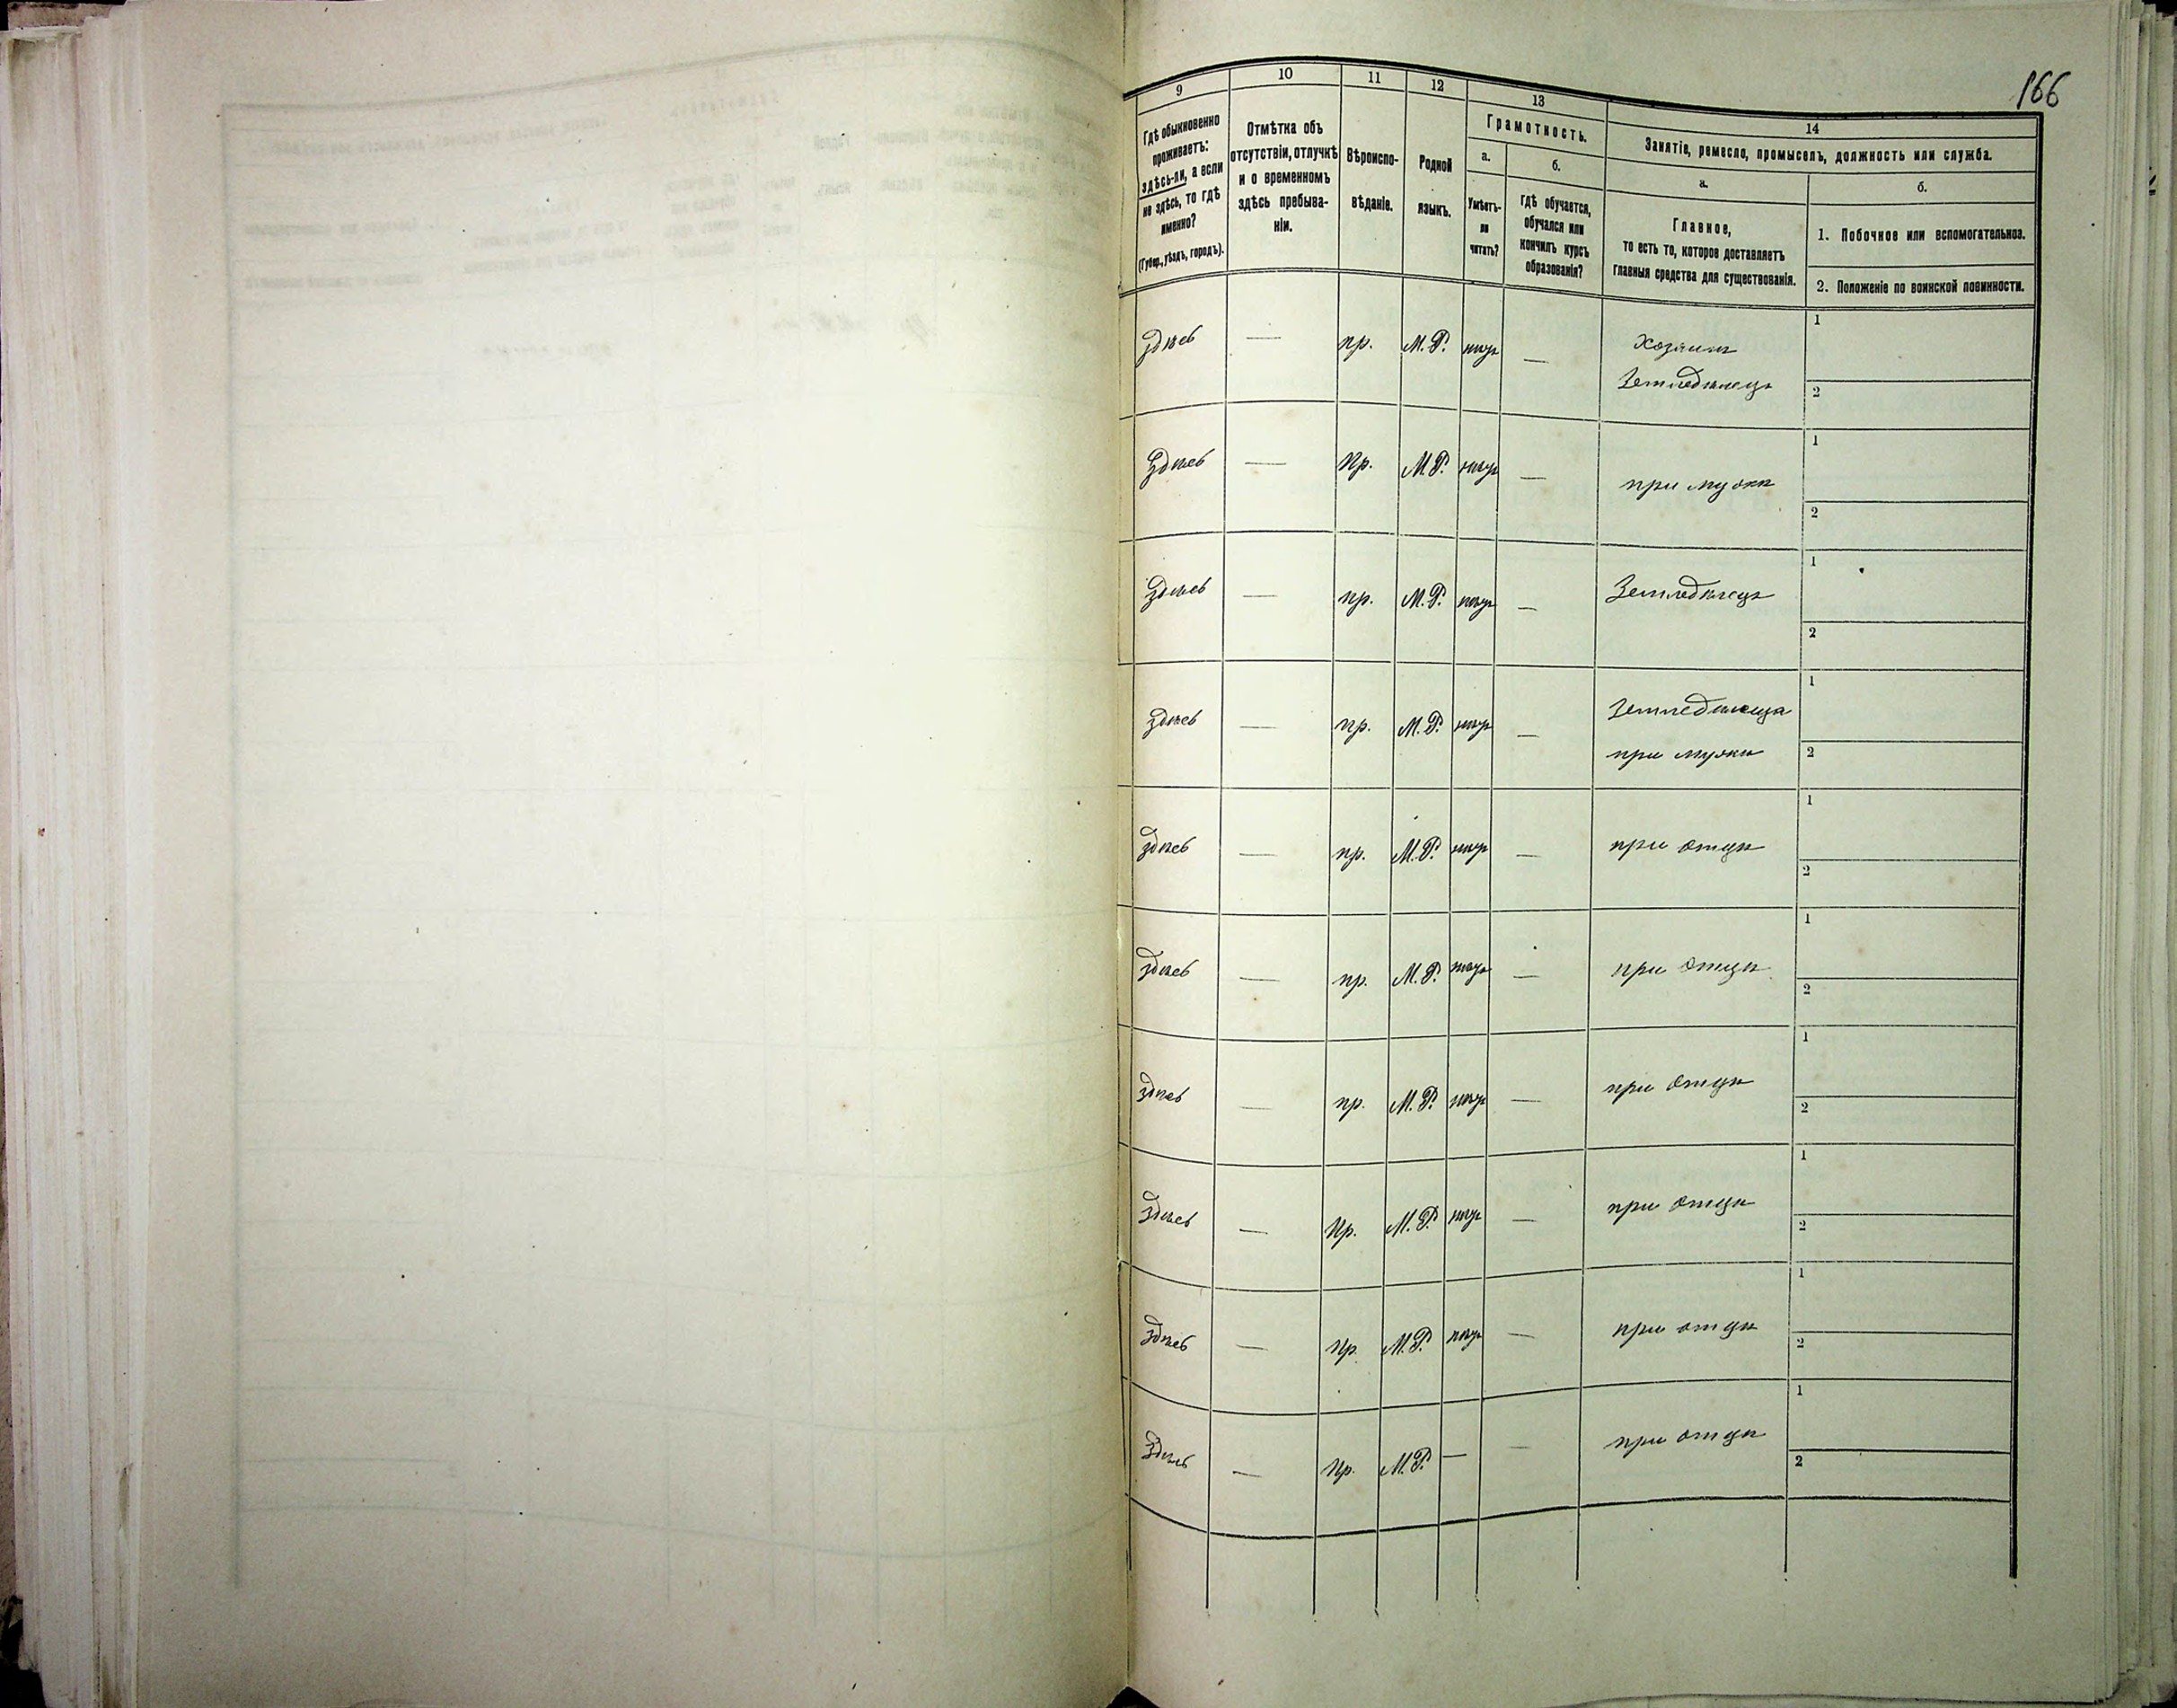 166
9
10
11
12
13
14
Гдѣ обыкновенно
проживаетъ:
здѣсь-ли, а если
не здѣсь, то гдѣ
именно?
(Губер., уѣздъ, городъ).
Отмѣтка объ
отсутствіи, отлучкѣ
и о временномъ
здѣсь пребыва-
ніи.
Вѣроиспо-
вѣданіе.
Родной
языкъ.
Грамотность.
а.
Умѣетъ-
ли
читать?
б.
гдѣ обучается,
обучался или
кончилъ курсъ
образованія?
Занятіе, ремесло, промыселъ, должность или служба.
а.
Главное,
то есть то, которое доставляетъ
главныя средства для существованія.
б.
1. Побочное или вспомогательное.
2. Положеніе по воинской повинности.
здѣсь — пр. М.Р. нѣтъ — Хозяинъ 1
Земледѣлецъ 2
здѣсь — пр. М.Р. нѣтъ — при мужѣ 1
2
здѣсь — пр. М.Р. нѣтъ — Земледѣлецъ 1
2
здѣсь — пр. М.Р. нѣтъ — Земледѣлеца 1
при мужѣ 2
здѣсь — пр. М.Р. нѣтъ — при отцѣ 1
2
здѣсь — пр. М.Р. нѣтъ — при отцѣ 1
2
здѣсь — пр. М.Р. нѣтъ — при отцѣ 1
2
здѣсь — пр. М.Р. нѣтъ — при отцѣ 1
2
здѣсь — пр. М.Р. нѣтъ — при отцѣ 1
2
здѣсь — пр. М.Р. — — при отцѣ 1
2